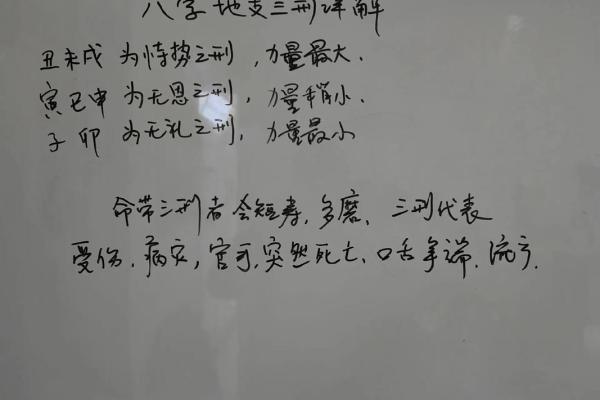 八字地支三刑详解
丑未戌 为恃势之刑,力量最大.
寅巳申 为无恩之刑,力量稍小.
子卯 为无礼之刑,力量最小
命带三刑者会短寿,多磨、三刑代表
受伤.病灾,官司,突然死亡、口舌争端.流产.